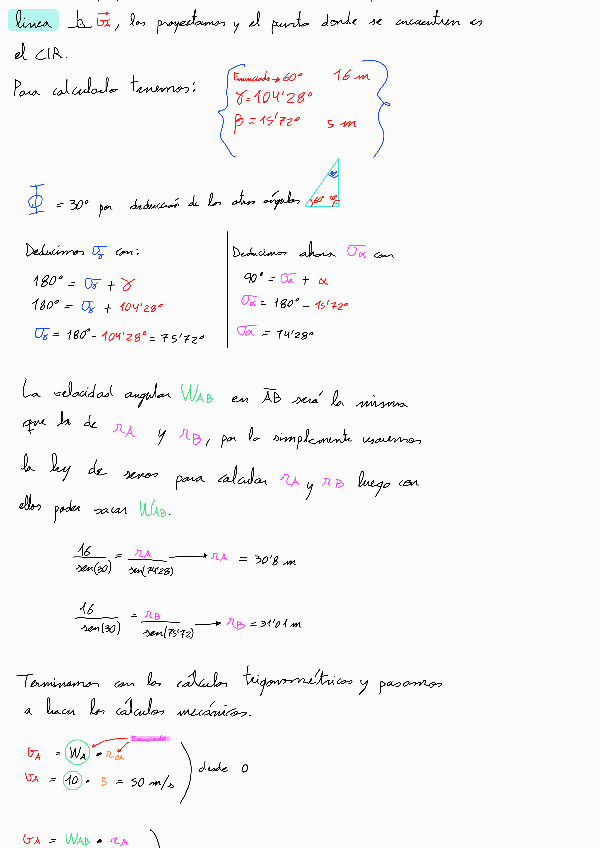 linea ⊥ a V̄A, los proyectamos y el punto donde se encuentren es
el CIR.
Para calcularlo tenemos:
Enunciado → 60° 16 m
γ = 104'28°
β = 15'72° 5 m
Φ = 30° por deducción de los otros ángulos
60°
Deducimos σγ con:
180° = σγ + γ
180° = σγ + 104'28°
σγ = 180° - 104'28° = 75'72°
Deducimos ahora σα con
90° = σα + α
σα = 180° - 15'72°
σα = 74'28°
La velocidad angular WAB en AB será la misma
que la de rA y rB, por lo simplemente usaremos
la ley de senos para calcular rA y rB luego con
ellos poder sacar WAB.
16/sen(30) = rA/sen(74'28) → rA = 30'8 m
16/sen(30) = rB/sen(75'72) → rB = 31'01 m
Terminamos con los cálculos trigonométricos y pasamos
a hacer los cálculos mecánicos.
Enunciado
VA = WA · rOA
VA = 10 · 5 = 50 m/s
desde O
VA = WAB · rA